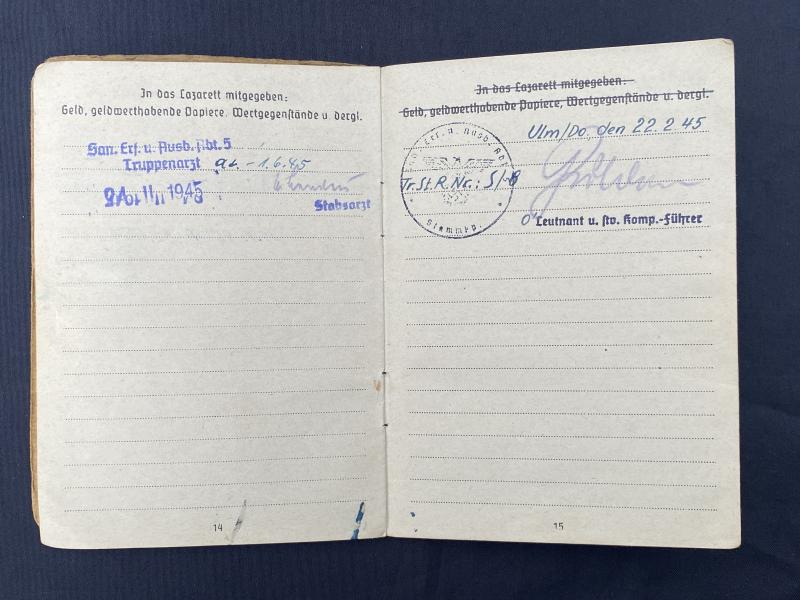 In das Lazarett mitgegeben:
Geld, geldwerthabende Papiere, Wertgegenstände u. dergl.
San. Ers. u. Ausb. Abt. 5
Truppenarzt a.v. - 1.6.45
1945
Stabsarzt
14
In das Lazarett mitgegeben:
Geld, geldwerthabende Papiere, Wertgegenstände u. dergl.
Ulm/Do, den 22.2.45
San. Ers. u. Ausb. Abt.
Tr.St.R.Nr.: 5/-8
Stammkp.
O' Leutnant u. stv. Komp.-Führer
15